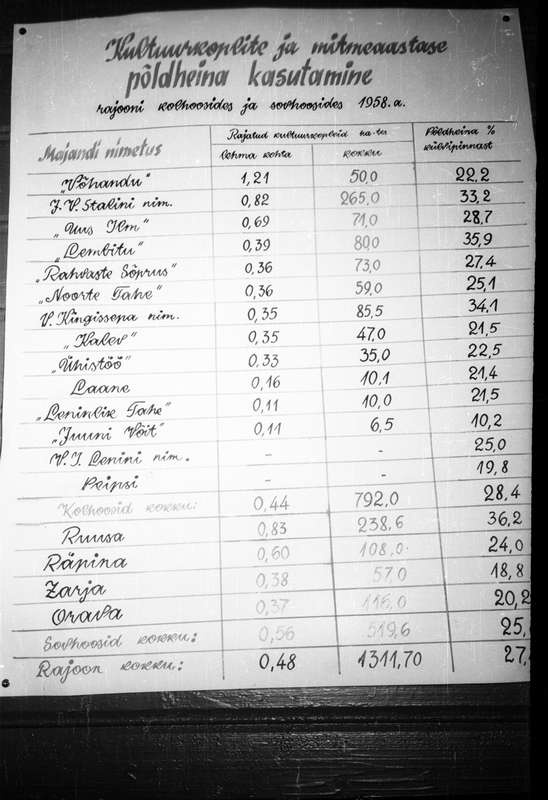 Kultuurkoplite ja mitmeaastase
põldheina kasutamine
rajooni kolhoosides ja sovhoosides 1958.a.
Majandi nimetus Rajatud kultuurkopleid ha-tes Põldheina %
lehma kohta kokku külvipinnast
„Võhandu" 1,21 50,0 22,2
J.V. Stalini nim. 0,82 265,0 33,2
„Uus Ilm" 0,69 71,0 28,7
„Lembitu" 0,39 80,0 35,9
„Rahvaste Sõprus" 0,36 73,0 27,4
„Noorte Tahe" 0,36 59,0 25,1
V. Kingissepa nim. 0,35 85,5 34,1
„Kalev" 0,35 47,0 21,5
„Ühistöö" 0,33 35,0 22,5
Laane 0,16 10,1 21,4
„Leninlik Tahe" 0,11 10,0 21,5
„Juuni Võit" 0,11 6,5 10,2
V.I. Lenini nim. - - 25,0
Peipsi - - 19,8
Kolhoosid kokku: 0,44 792,0 28,4
Ruusa 0,83 238,6 36,2
Räpina 0,60 108,0 24,0
Zarja 0,38 57,0 18,8
Orava 0,37 116,0 20,2
Sovhoosid kokku: 0,56 519,6 25,
Rajoon kokku: 0,48 1311,70 27,